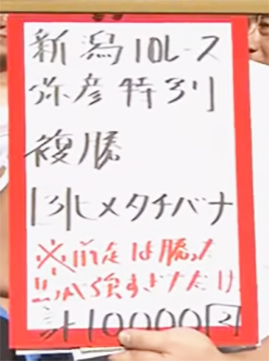 新潟10レース
弥彦特別
複勝
13ヒメタチバナ
※前走は勝った
馬が強すぎただけ
計10000円